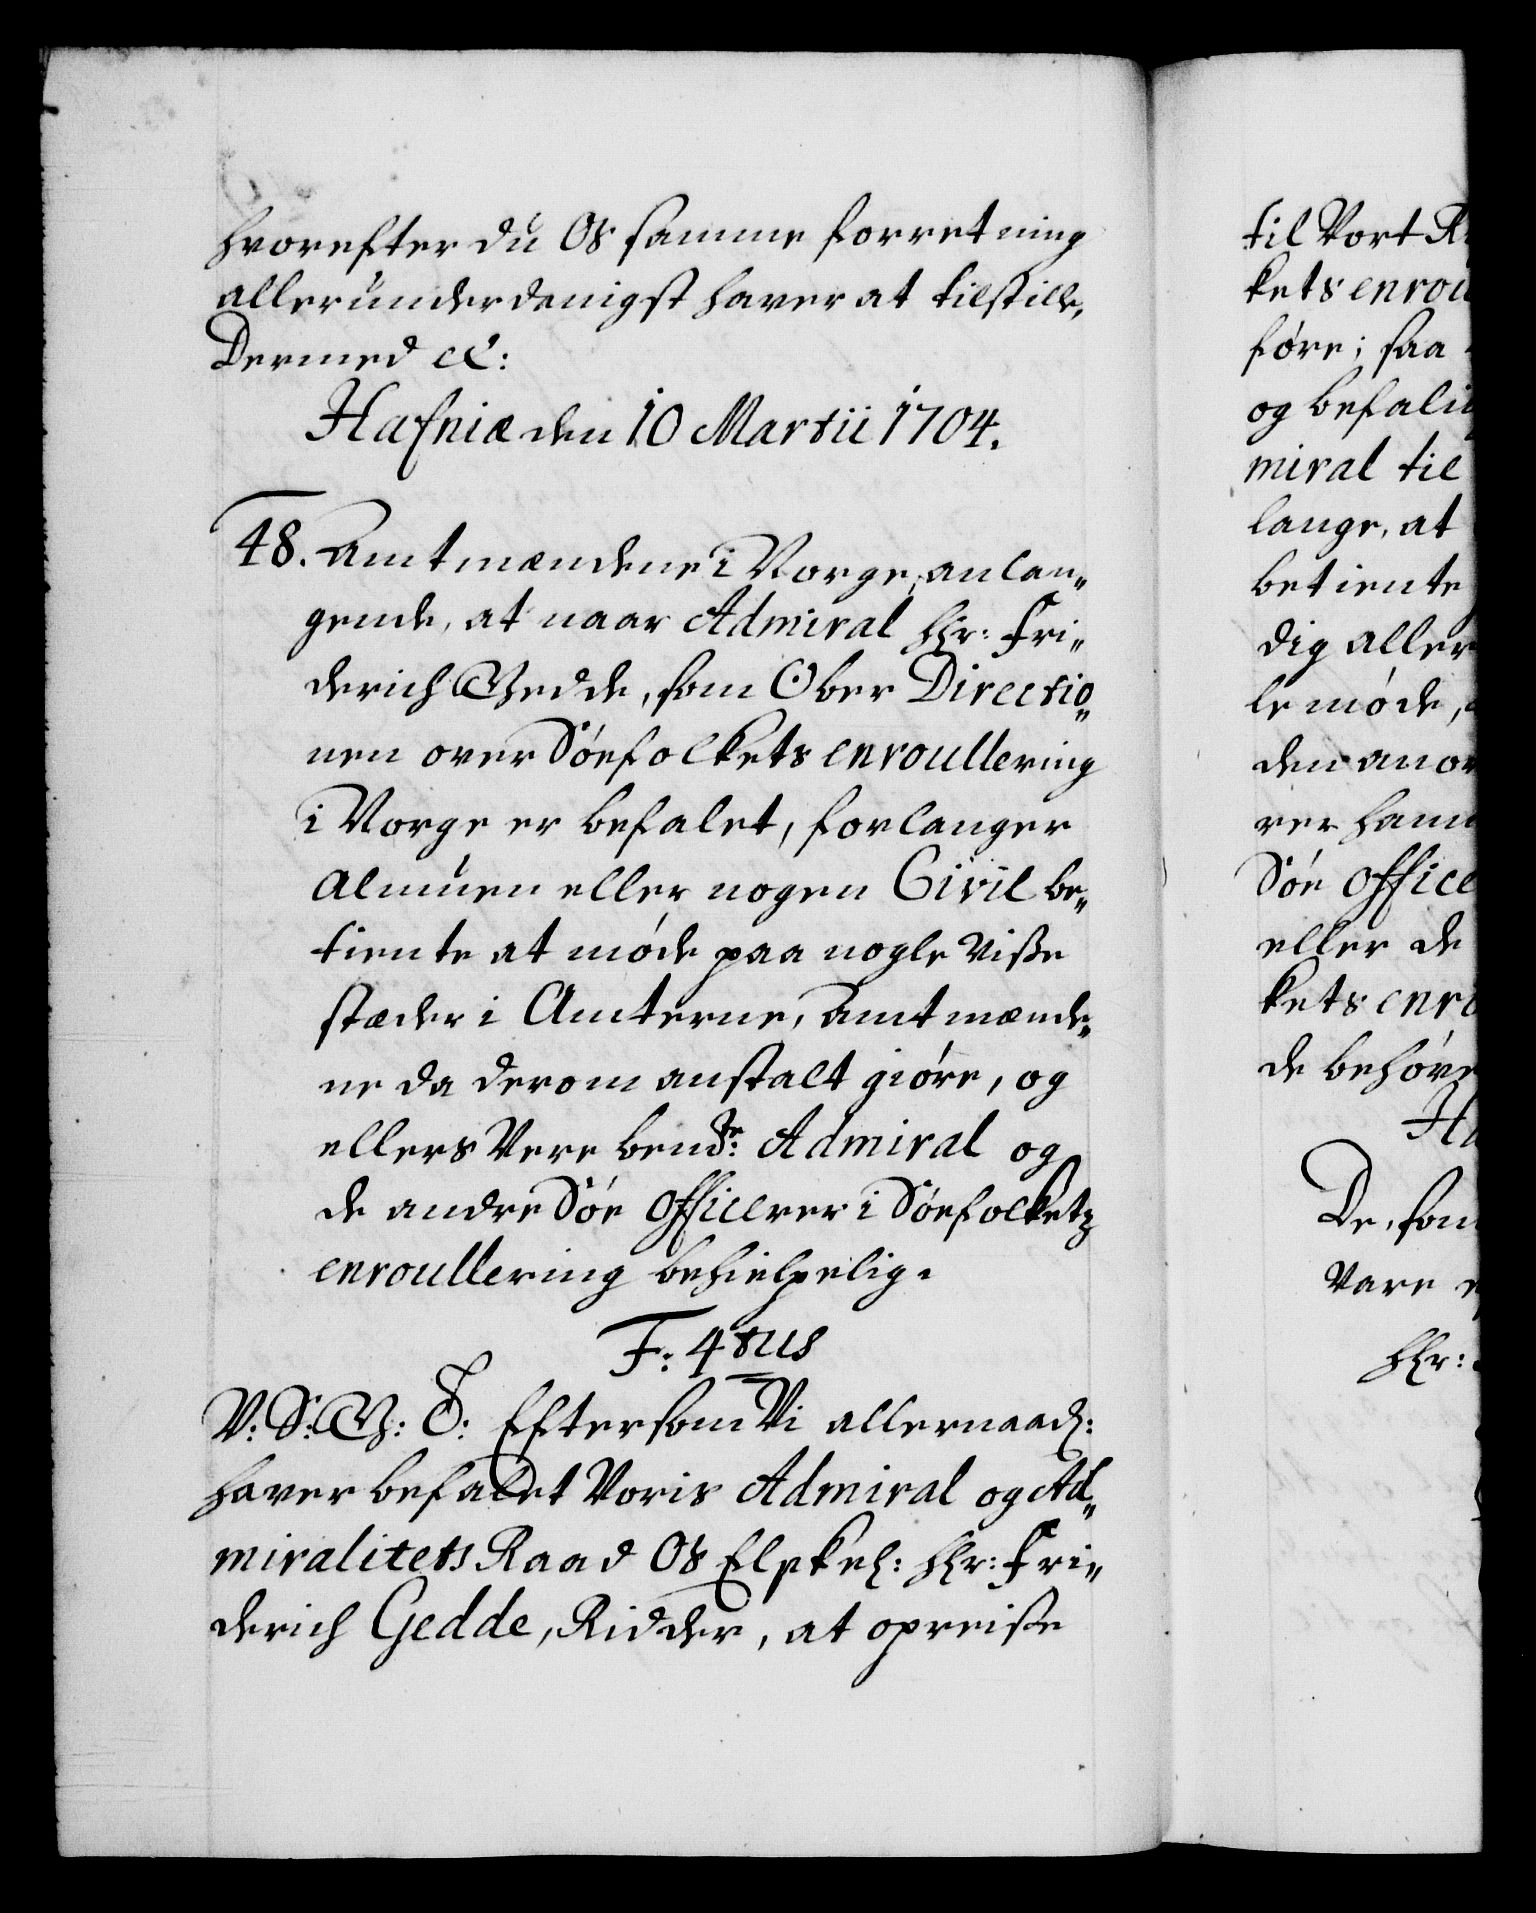 hvorefter du Os samme forretning
allerunderdanigst haver at tilstille,
Dermed etc:
Hafniæ den 10 Martii 1704.
48. Amtmændene i Norge, anlan„
gende, at naar Admiral Hr: Fri„
derich Gedde, som Ober Directio„
nen over Söefolkets enroullering
i Norge er befalet, forlanger
Almuen eller nogen Civil be„
tiente at møde paa nogle visse
stæder i Amterne, Amtmænde„
ne da derom anstalt giøre, og
ellers Vere bemte: Admiral og
de andre Söe Officerer i Söefolketz
enroullering behielpelig.
F: 4tus
V: S: G: T: Eftersom Vi allernaad:
haver befalet Voris Admiral og Ad„
miralitets Raad Os Elskel: Hr: Fri„
derich Gedde, Ridder, at opreise
til Vort R
kets enrou
føre; saa
og befali
miral til
lange, at
betiente
dig aller
le møde,
den anor
rer ham
Söe Office
eller de
kets enro
de behøve
Ha
De, som
Vare
Hr: